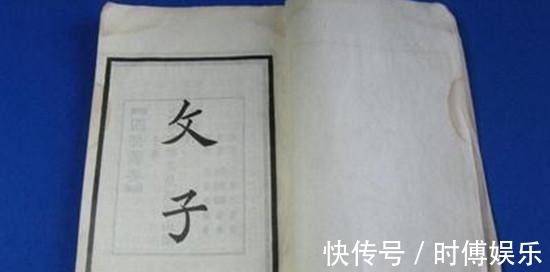 文子
快传号 / 时傅娱乐